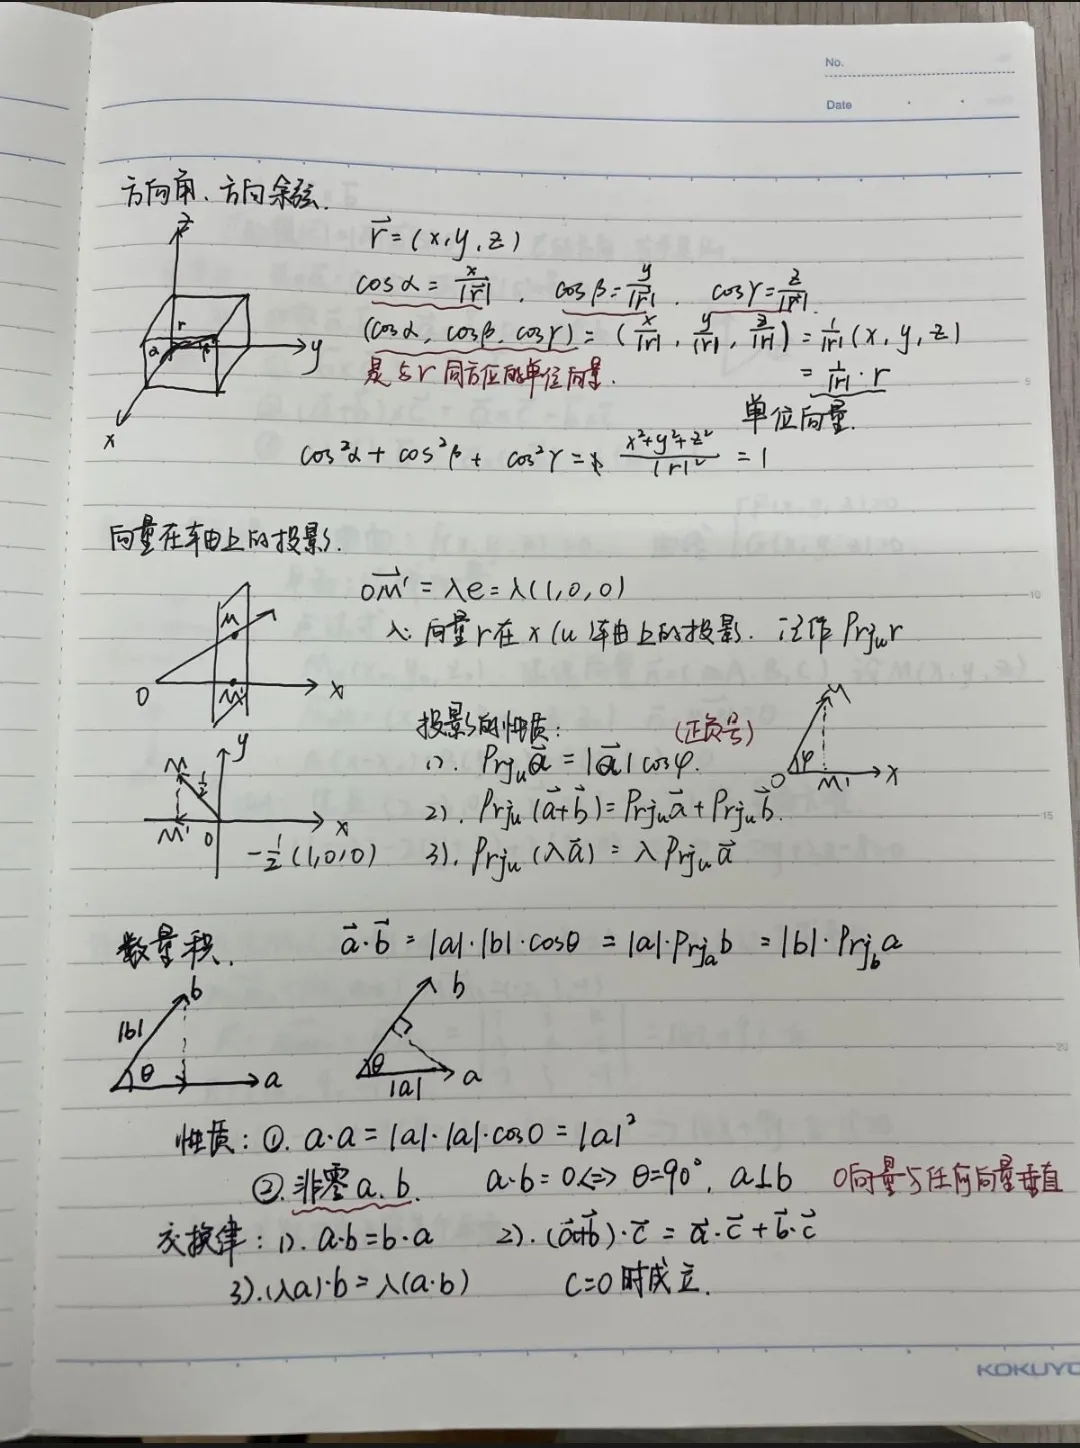 No.
Date
方向角、方向余弦.
z
r
α
β
y
x
r⃗=(x,y,z)
cosα=x/|r⃗|, cosβ=y/|r⃗|, cosγ=z/|r⃗|.
(cosα, cosβ, cosγ)=(x/|r|, y/|r|, z/|r|)=1/|r|(x,y,z)
是与r同方位的单位向量.
=1/|r|·r
单位向量.
cos²α+cos²β+cos²γ= (x²+y²+z²)/|r|² =1
向量在轴上的投影.
OM'⃗=λe=λ(1,0,0)
λ:向量r在x(u)轴上的投影.记作Prjᵤr
M
O
M'
x
投影的性质:
(正负号)
1). Prjᵤa⃗=|a⃗|cosφ.
M
O φ M' x
y
M
1/2
M' O x
-1/2(1,0,0)
2). Prjᵤ(a⃗+b⃗)=Prjᵤa⃗+Prjᵤb⃗.
3). Prjᵤ(λa⃗)=λPrjᵤa⃗
数量积.
a⃗·b⃗=|a|·|b|·cosθ=|a|·Prjₐb=|b|·Prj_b a
b
|b|
θ
a
b
θ
|a|
a
性质:①. a·a=|a|·|a|·cos0=|a|²
②.非零a.b. a·b=0<=>θ=90°, a⊥b 0向量与任何向量垂直
交换律:1). a·b=b·a 2). (a⃗+b⃗)·c⃗=a⃗·c⃗+b⃗·c⃗
3).(λa)·b=λ(a·b) C=0时成立.
10
15
20
KOKUYO